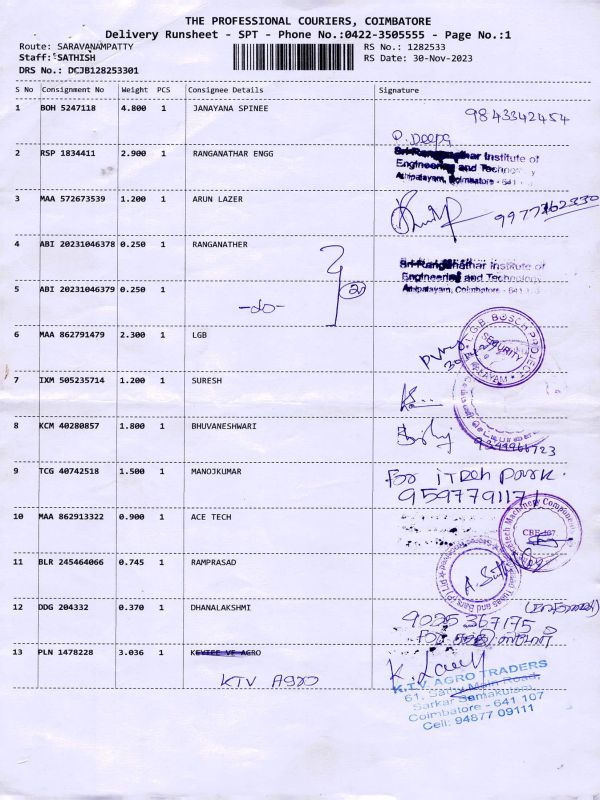 THE PROFESSIONAL COURIERS, COIMBATORE
Delivery Runsheet - SPT - Phone No.:0422-3505555 - Page No.:1
Route: SARAVANAMPATTY
RS No.: 1282533
Staff: SATHISH
RS Date: 30-Nov-2023
DRS No.: DCJB128253301
S No Consignment No Weight PCS Consignee Details Signature
1 BOH 5247118 4.800 1 JANAYANA SPINEE
9843342454
D. Deepa
2 RSP 1834411 2.900 1 RANGANATHAR ENGG
Sri Ranganathar Institute of
Engineering and Technology
Athipalayam, Coimbatore - 641
3 MAA 572673539 1.200 1 ARUN LAZER
4 ABI 20231046378 0.250 1 RANGANATHER
Sri Ranganathar Institute of
Engineering and Technology
Athipalayam, Coimbatore - 641
5 ABI 20231046379 0.250 1
-do-
2
6 MAA 862791479 2.300 1 LGB
L.G.B. BOSCH PROJECT
SECURITY
7 IXM 505235714 1.200 1 SURESH
8 KCM 40280857 1.800 1 BHUVANESHWARI
9 TCG 40742518 1.500 1 MANOJKUMAR
For iTech park.
9597791171
10 MAA 862913322 0.900 1 ACE TECH
Machinery Components
11 BLR 245464066 0.745 1 RAMPRASAD
12 DDG 204332 0.370 1 DHANALAKSHMI
9025367175
13 PLN 1478228 3.036 1 KEYTEE VE AGRO
KTV AGRO
K.T.V. AGRO TRADERS
Sarkar Samakulam
Coimbatore - 641 107
Cell: 94877 09111